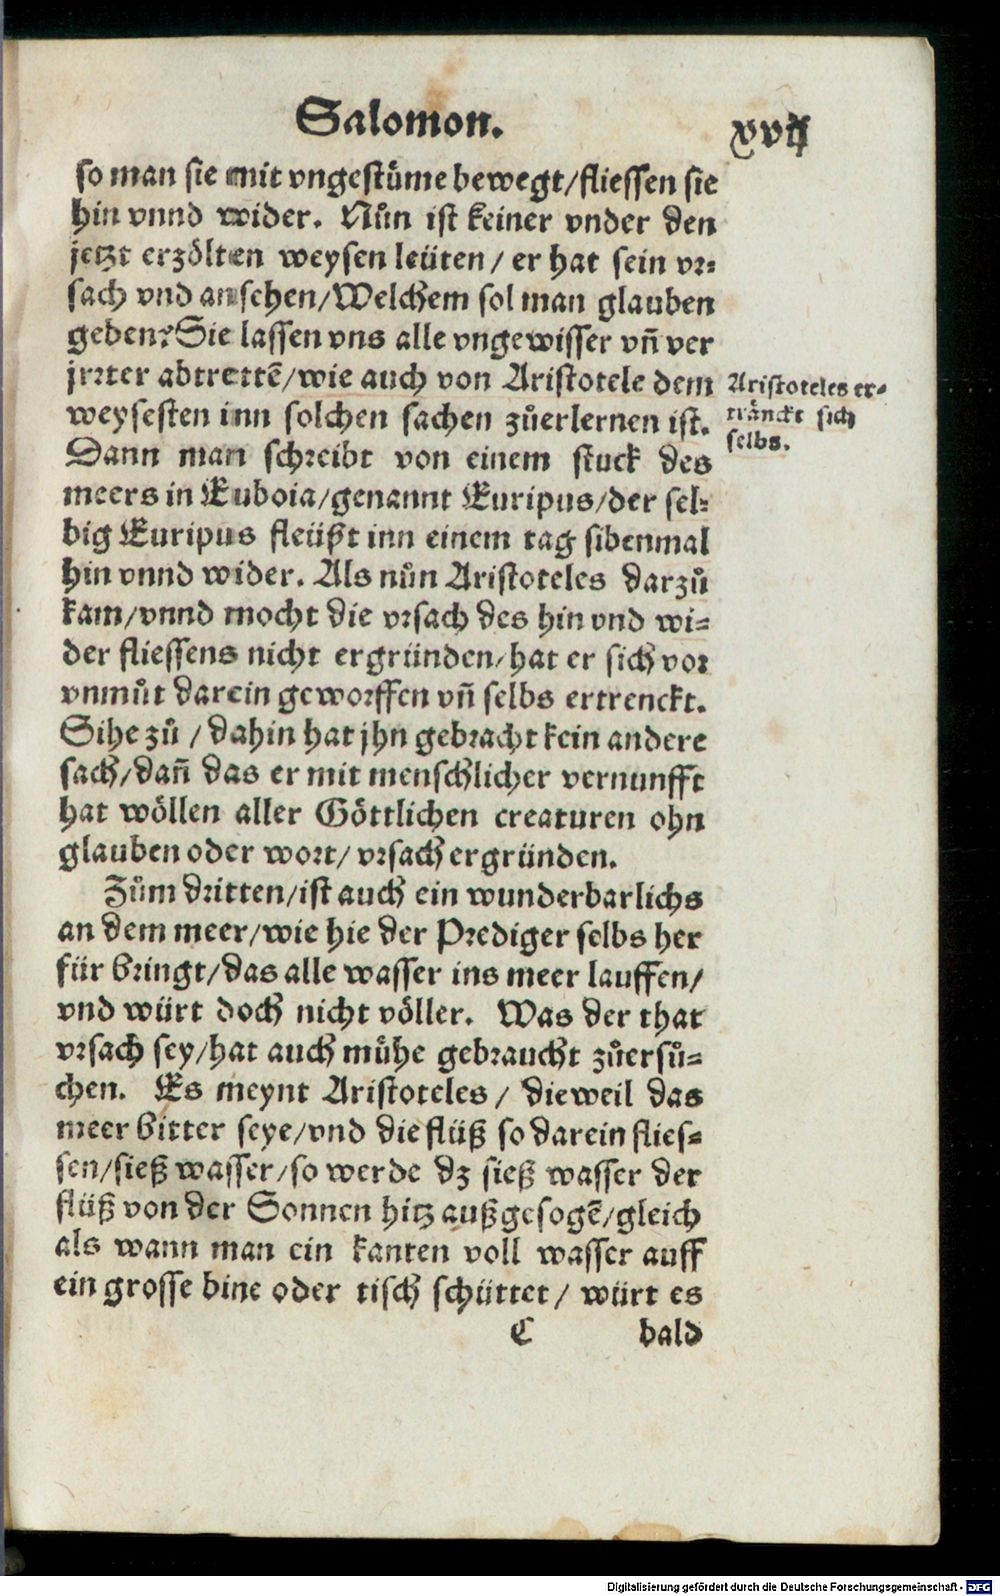 Salomon. xvij
so man sie mit vngestüme bewegt/fliessen sie
hin vnnd wider. Nůn ist keiner vnder den
jetzt erzölten weysen leüten/ er hat sein vr-
sach vnd ansehen/Welchem sol man glauben
geben? Sie lassen vns alle vngewisser vñ ver
jrrter abtrettẽ/wie auch von Aristotele dem
weysesten inn solchen sachen zůerlernen ist.
Dann man schreibt von einem stuck des
meers in Euboia/genannt Euripus/der sel-
big Euripus fleüßt inn einem tag sibenmal
hin vnnd wider. Als nůn Aristoteles darzů
kam/vnnd mocht die vrsach des hin vnd wi-
der fliessens nicht ergründen/hat er sich vor
vnmůt darein geworffen vñ selbs ertrenckt.
Aristoteles er-
tränckt sich
selbs.
Sihe zů/dahin hat jhn gebracht kein andere
sach/dañ das er mit menschlicher vernunfft
hat wöllen aller Göttlichen creaturen ohn
glauben oder wort/vrsach ergründen.
Zům dritten/ist auch ein wunderbarlichs
an dem meer/wie hie der Prediger selbs her
für bringt/das alle wasser ins meer lauffen/
vnd würt doch nicht völler. Was der that
vrsach sey/hat auch mühe gebraucht zůersů-
chen. Es meynt Aristoteles/ dieweil das
meer bitter seye/vnd die flüß so darein flies-
sen/sieß wasser/so werde dz sieß wasser der
flüß von der Sonnen hitz außgesogẽ/gleich
als wann man ein kanten voll wasser auff
ein grosse bine oder tisch schüttet/ würt es
C bald
Digitalisierung gefördert durch die Deutsche Forschungsgemeinschaft - DFG